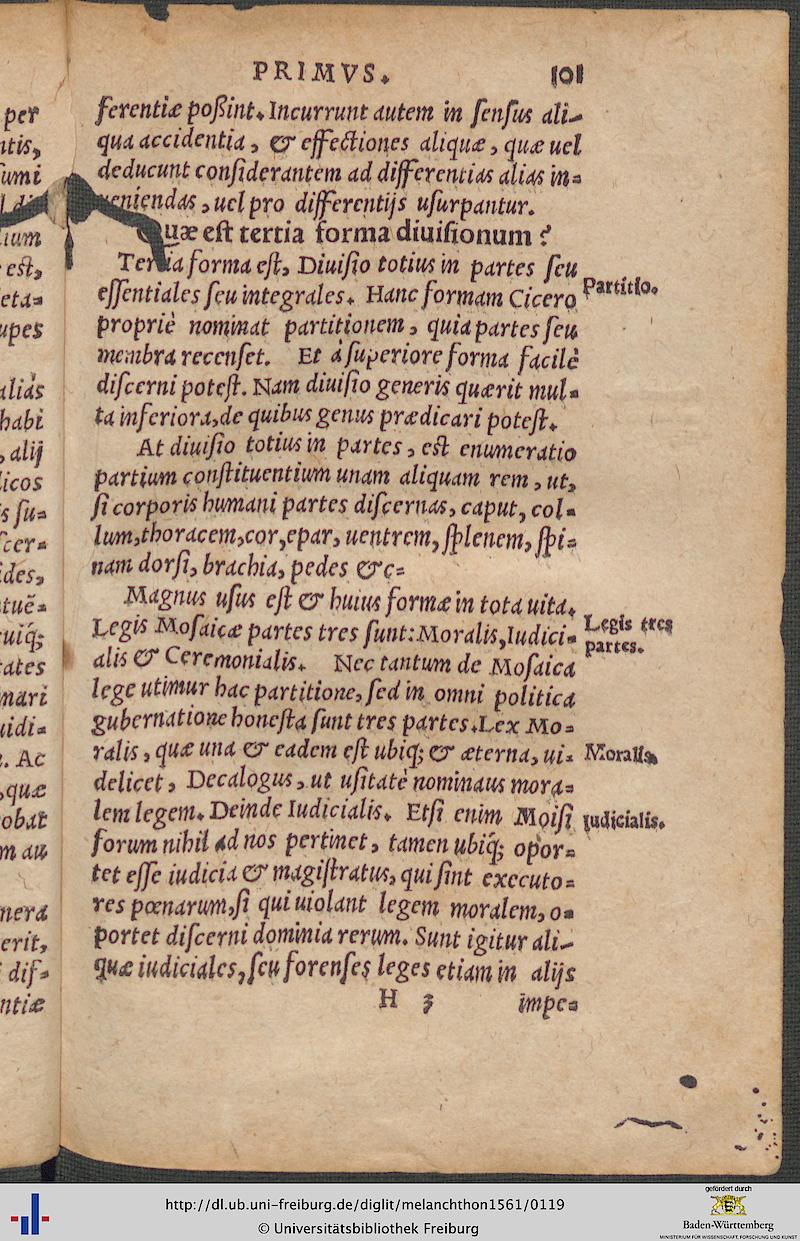 PRIMVS. 101
per
ferentiæ poßint. Incurrunt autem in ſenſus ali-
ntis,
qua accidentia, & effectiones aliquæ, quæ uel
ſumi
deducunt conſiderantem ad differentias alias in=
ueniendas, uel pro differentijs uſurpantur.
lium
Quæ eſt tertia forma diuiſionum?
est,
Tertia forma eſt, Diuiſio totius in partes ſeu
Partitio.
eta=
eſſentiales ſeu integrales. Hanc formam Cicero
upes
propriè nominat partitionem, quia partes ſeu
membra recenſet. Et à ſuperiore forma facilè
aliàs
diſcerni poteſt. Nam diuiſio generis quærit mul=
habi
ta inferiora, de quibus genus prædicari poteſt.
, alij
At diuiſio totius in partes, est enumeratio
licos
partium conſtituentium unam aliquam rem, ut,
is ſu=
ſi corporis humani partes diſcernas, caput, col=
ſcer=
lum, thoracem, cor, epar, uentrem, ſplenem, ſpi=
ides,
nam dorſi, brachia, pedes &c=
tuē=
Magnus uſus eſt & huius formæ in tota uita.
Legis tres
uiq́;
Legis Moſaicæ partes tres ſunt: Moralis, Iudici=
partes.
tates
alis & Ceremonialis. Nec tantum de Moſaica
mari
lege utimur hac partitione, ſed in omni politica
uidi=
gubernatione honeſta ſunt tres partes. Lex Mo=
. Ac
ralis, quæ una & eadem eſt ubiq́; & æterna, ui=
Moralis.
,quæ
delicet, Decalogus, ut uſitatè nominaus mora=
obat
lem legem. Deinde Iudicialis. Etſi enim Moiſi
Iudicialis.
m au
forum nihil ad nos pertinet, tamen ubiq́; opor=
tet eſſe iudicia & magiſtratus, qui ſint executo=
nera
res pœnarum, ſi qui uiolant legem moralem, o=
erit,
portet diſcerni dominia rerum. Sunt igitur ali-
dif=
quæ iudiciales, ſeu forenſes leges etiam in alijs
ntiæ
H 3 impe=
http://dl.ub.uni-freiburg.de/diglit/melanchthon1561/0119
© Universitätsbibliothek Freiburg
gefördert durch
Baden-Württemberg
MINISTERIUM FÜR WISSENSCHAFT, FORSCHUNG UND KUNST